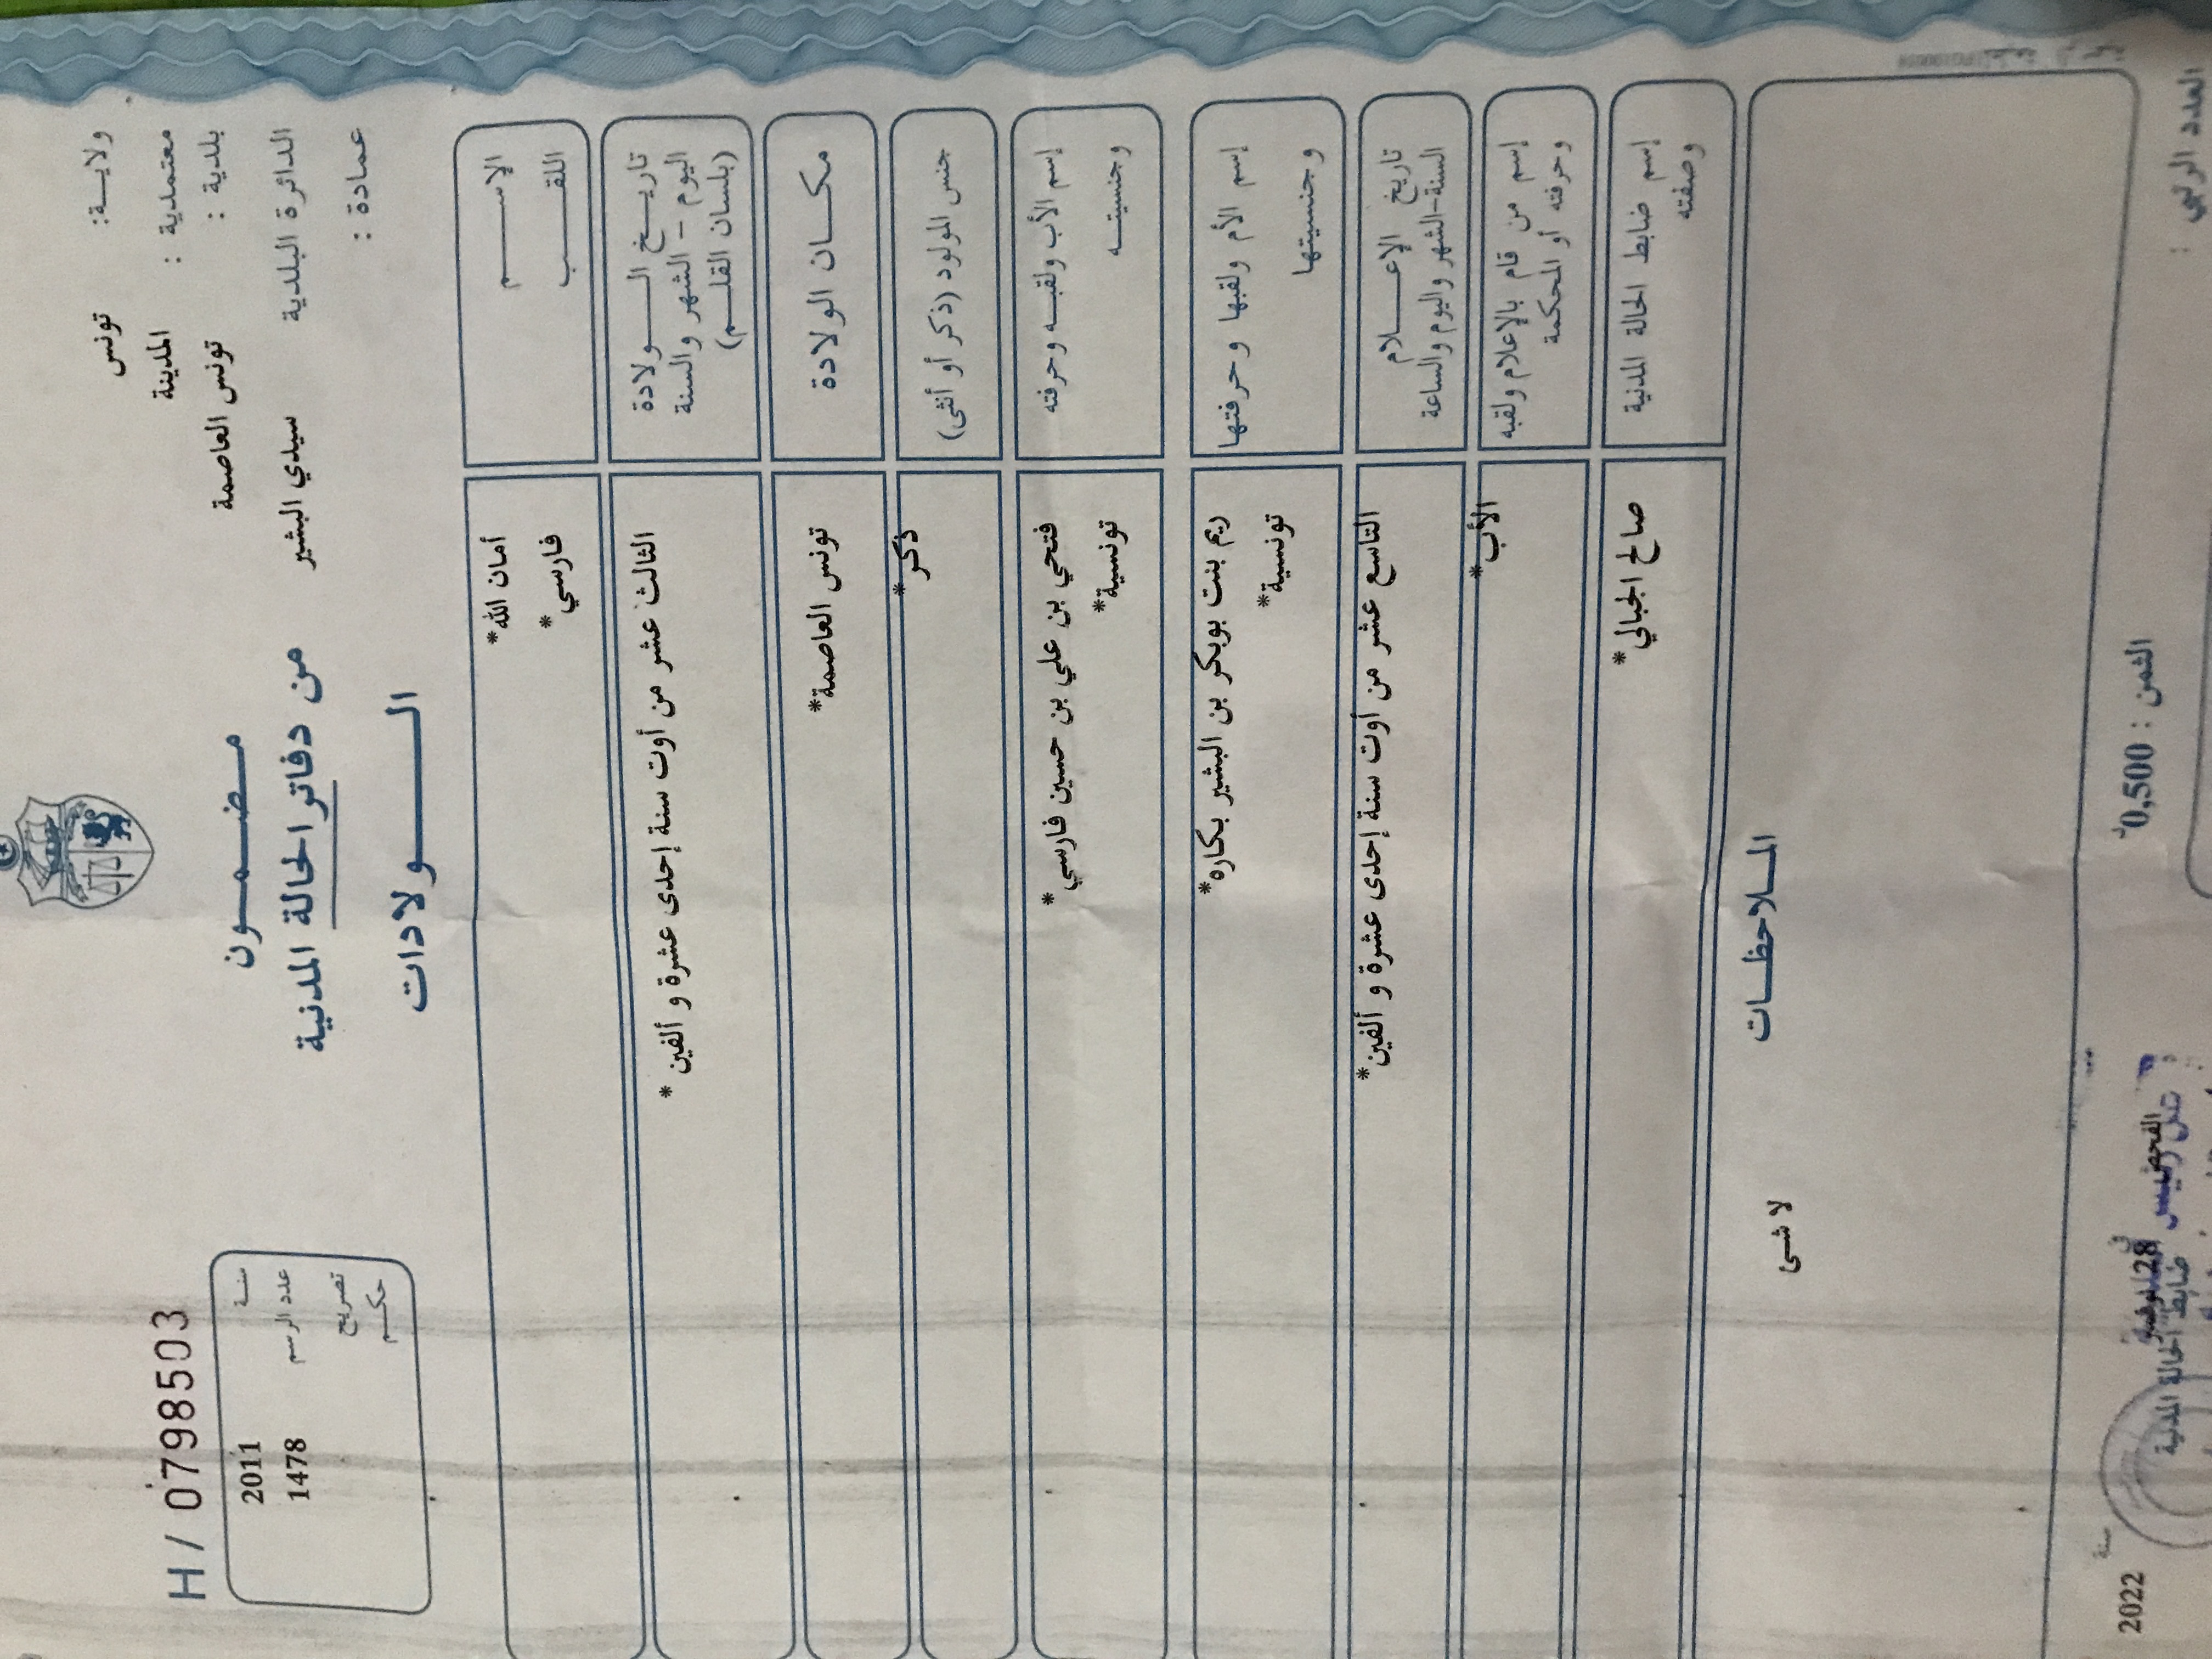 ولايـــة: تونس
معتمدية : المدينة
بلدية : تونس العاصمة
الدائرة البلدية سيدي البشير
عمادة :
مـــضـــمـــون
من دفاتر الحالة المدنية
الـــــولادات
H / 0798503
سنـــة 2011
عدد الرسم 1478
تصريح
حكـــم
الإســـــم أمان الله*
اللقـــــب فارسي*
تاريـــخ الــــولادة
اليوم – الشهر والسنة
(بلسان القلـــم)
الثالث عشر من أوت سنة إحدى عشرة و ألفين *
مكـــان الولادة تونس العاصمة*
جنس المولود (ذكر أو أنثى) ذكر*
إسم الأب ولقبـــه وحرفته فتحي بن علي بن حسين فارسي*
وجنسيتـــه تونسية*
إسم الأم ولقبها وحرفتها ريم بنت بوبكر بن البشير بكاره*
وجنسيتها تونسية*
تاريخ الإعـــــلام
السنة-الشهر واليوم والساعة
التاسع عشر من أوت سنة إحدى عشرة و ألفين*
إسم من قام بالإعلام ولقبه
وحرفته أو المحكمة
الأب*
إسم ضابط الحالة المدنية
وصفته
صالح الجبالي*
المـــلاحظـــات
لا شئ
الثمن : 0,500د
العدد الرتبي :
28
ضابط الحالة المدنية
سنة 2022